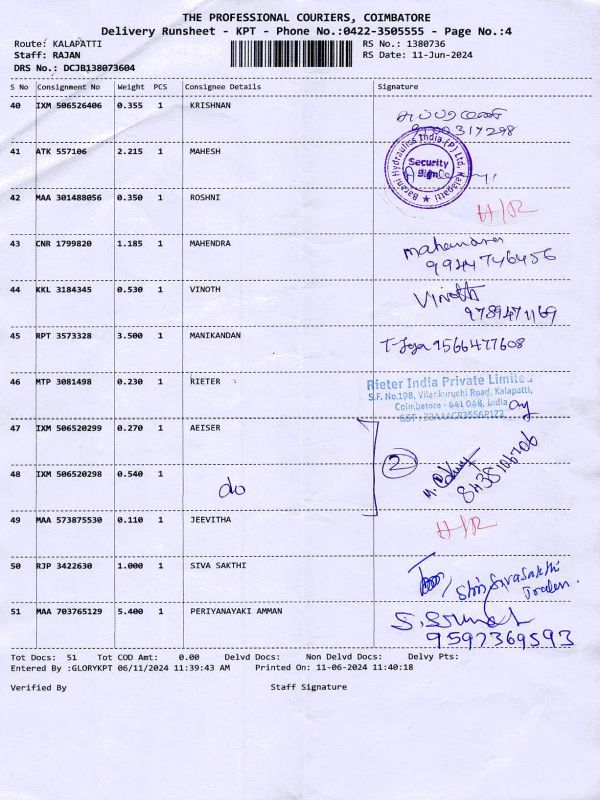 THE PROFESSIONAL COURIERS, COIMBATORE
Delivery Runsheet - KPT - Phone No.:0422-3505555 - Page No.:4
Route: KALAPATTI RS No.: 1380736
Staff: RAJAN RS Date: 11-Jun-2024
DRS No.: DCJB138073604
S No Consignment No Weight PCS Consignee Details Signature
40 IXM 506526406 0.355 1 KRISHNAN
41 ATK 557106 2.215 1 MAHESH
Baroni Hydraulics India (P) Ltd. Kalapatti
Security
Sign
42 MAA 301488056 0.350 1 ROSHNI H/R
43 CNR 1799820 1.185 1 MAHENDRA Mahendra
9944746456
44 KKL 3184345 0.530 1 VINOTH Vinoth
9789471169
45 RPT 3573328 3.500 1 MANIKANDAN 9566477608
46 MTP 3081498 0.230 1 RIETER Rieter India Private Limited
S.F. No.198, Vilankuruchi Road, Kalapatti,
Coimbatore - 641 048, India
47 IXM 506520299 0.270 1 AEISER
48 IXM 506520298 0.540 1 do 2
8438106706
49 MAA 573875530 0.110 1 JEEVITHA H/R
50 RJP 3422630 1.000 1 SIVA SAKTHI Shri Sivasakthi
Traders.
51 MAA 703765129 5.400 1 PERIYANAYAKI AMMAN
9597369593
Tot Docs: 51 Tot COD Amt: 0.00 Delvd Docs: Non Delvd Docs: Delvy Pts:
Entered By :GLORYKPT 06/11/2024 11:39:43 AM Printed On: 11-06-2024 11:40:18
Verified By Staff Signature